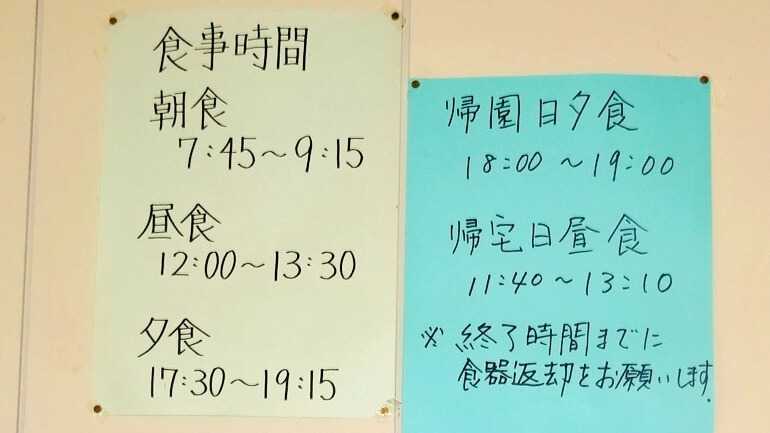 食事時間
朝食
7:45～9:15
昼食
12:00～13:30
夕食
17:30～19:15
帰園日夕食
18:00～19:00
帰宅日昼食
11:40～13:10
※終了時間までに
食器返却をお願いします.